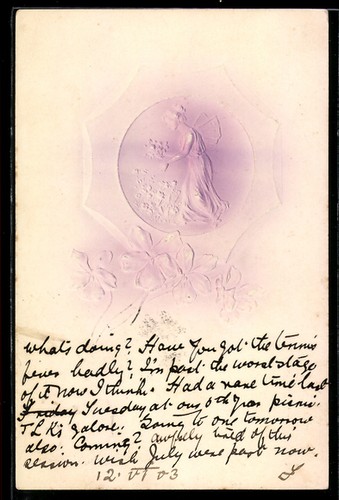 what's doing? Have you got the tennis
fever badly? I'm past the worst stage
of it now I think. Had a rare time last
Friday Tuesday at our 6th year picnic.
T L Ks galore. Going to one tomorrow
also. Coming? awfully tired of this
session. wish July were past now.
12. VI 03